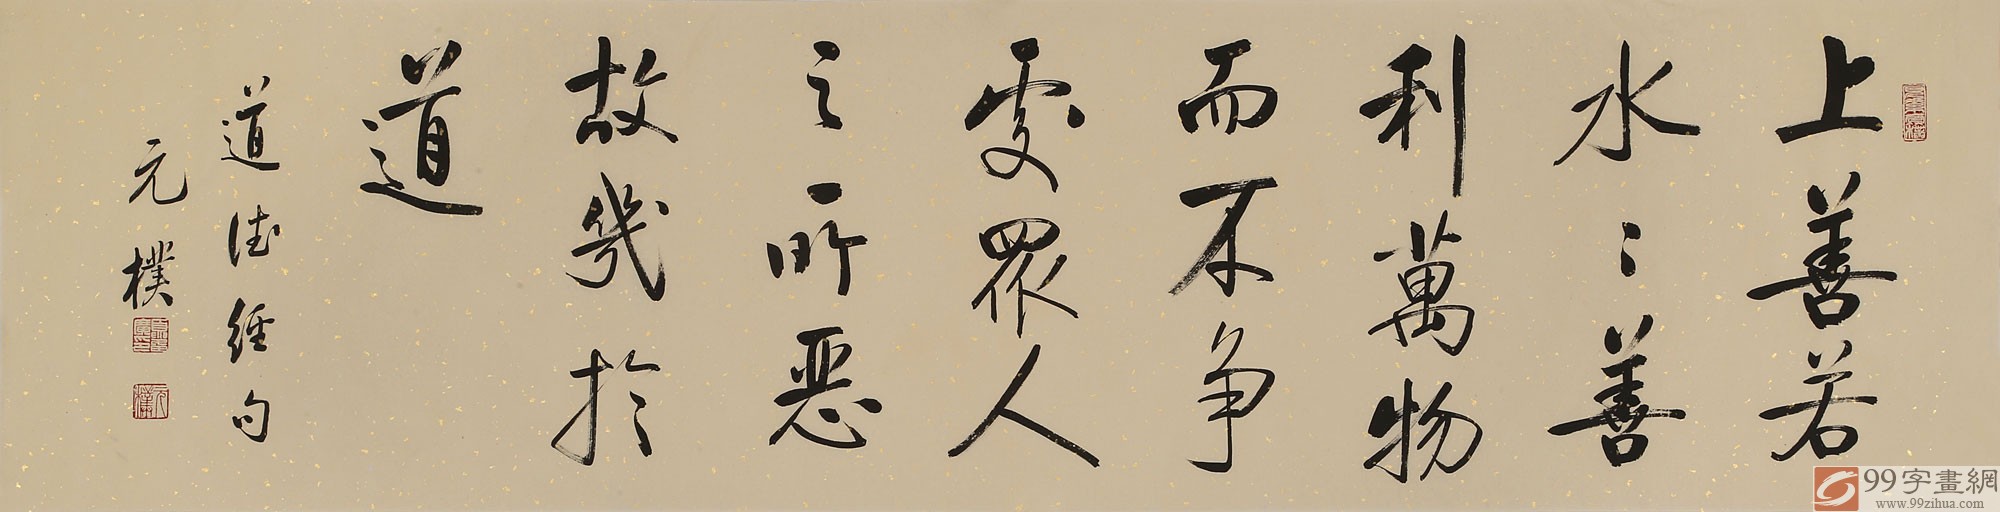 上善若
水〻善
利萬物
而不争
處眾人
之所恶
故幾於
道
道德經句
元樸
99字畫網
www.99zihua.com